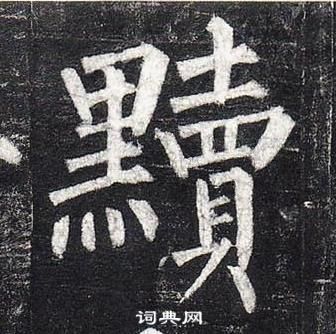 黷
词典网